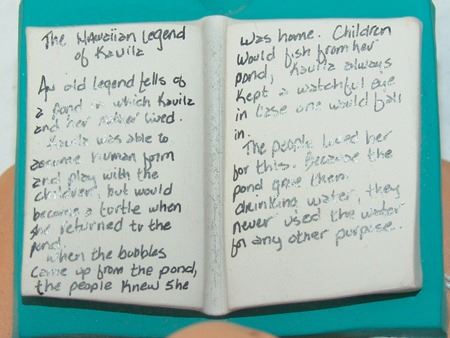 The Hawaiian Legend
of Kauila
An old legend tells of
a pond in which Kauila
and her mother lived.
Kauila was able to
assume human form
and play with the
children, but would
become a turtle when
she returned to the
pond.
When the bubbles
came up from the pond,
the people knew she
was home. Children
would fish from her
pond, Kauila always
kept a watchful eye
in case one would fall
in.
The people loved her
for this. Because the
pond gave them
drinking water, they
never used the water
for any other purpose.